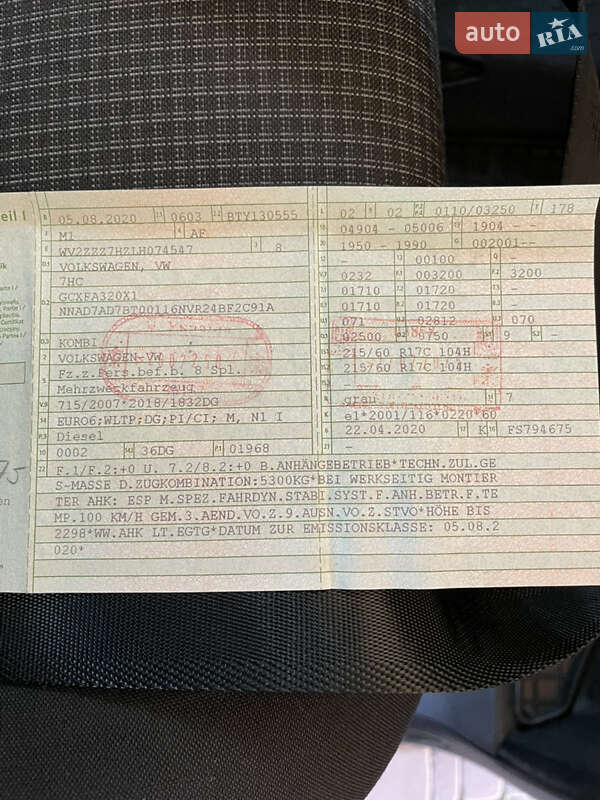 auto RIA .com
eil I
B 05.08.2020 2.1 0603 2.2 BTY130555
J M1 4 AF
E WV2ZZZ7HZLH074547 3 8
D.1 VOLKSWAGEN, VW
7HC
D.2 GCXFA320X1
NNAD7AD7BT00116NVR24BF2C91A
D.3 KOMBI
2 VOLKSWAGEN-VW
5 Fz.z.Pers.bef.b. 8 Spl.
Mehrzweckfahrzeug
V.9 715/2007*2018/1832DG
14 EURO6;WLTP;DG;PI/CI; M, N1 I
P.3 Diesel
10 0002 14.1 36DG P.1 01968
L 02 9 02 P.2 P.4 0110/03250 T 178
18 04904 - 05006 19 1904 --
20 1950 - 1990 G 002001--
12 - 13 00100 Q -
V.7 0232 F.1 003200 F.2 3200
7.1 01710 7.2 01720 7.3 -
8.1 01710 8.2 01720 8.3 -
U.1 071 U.2 02812 U.3 070
O.1 02500 O.2 0750 S.1 9 S.2 -
15.1 215/60 R17C 104H
15.2 215/60 R17C 104H
15.3 -
R grau 11 7
K e1*2001/116*0220*60
6 22.04.2020 17 K 16 FS794675
21 -
22 F.1/F.2:+0 U. 7.2/8.2:+0 B.ANHÄNGEBETRIEB*TECHN.ZUL.GE
S-MASSE D.ZUGKOMBINATION:5300KG*BEI WERKSEITIG MONTIER
TER AHK: ESP M.SPEZ.FAHRDYN.STABI.SYST.F.ANH.BETR.F.TE
MP.100 KM/H GEM.3.AEND.VO.Z.9.AUSN.VO.Z.STVO*HÖHE BIS
2298*WW.AHK LT.EGTG*DATUM ZUR EMISSIONSKLASSE: 05.08.2
020*